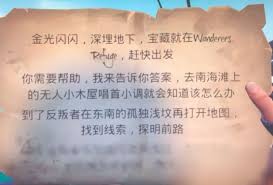 金光闪闪，深埋地下，宝藏就在Wanderers
Refuge，赶快出发
你需要帮助，我来告诉你答案，去南海滩上
的无人小木屋唱首小调就会知道该怎么办
到了反叛者在东南的孤独浅坟再打开地图，
找到线索，探明前路